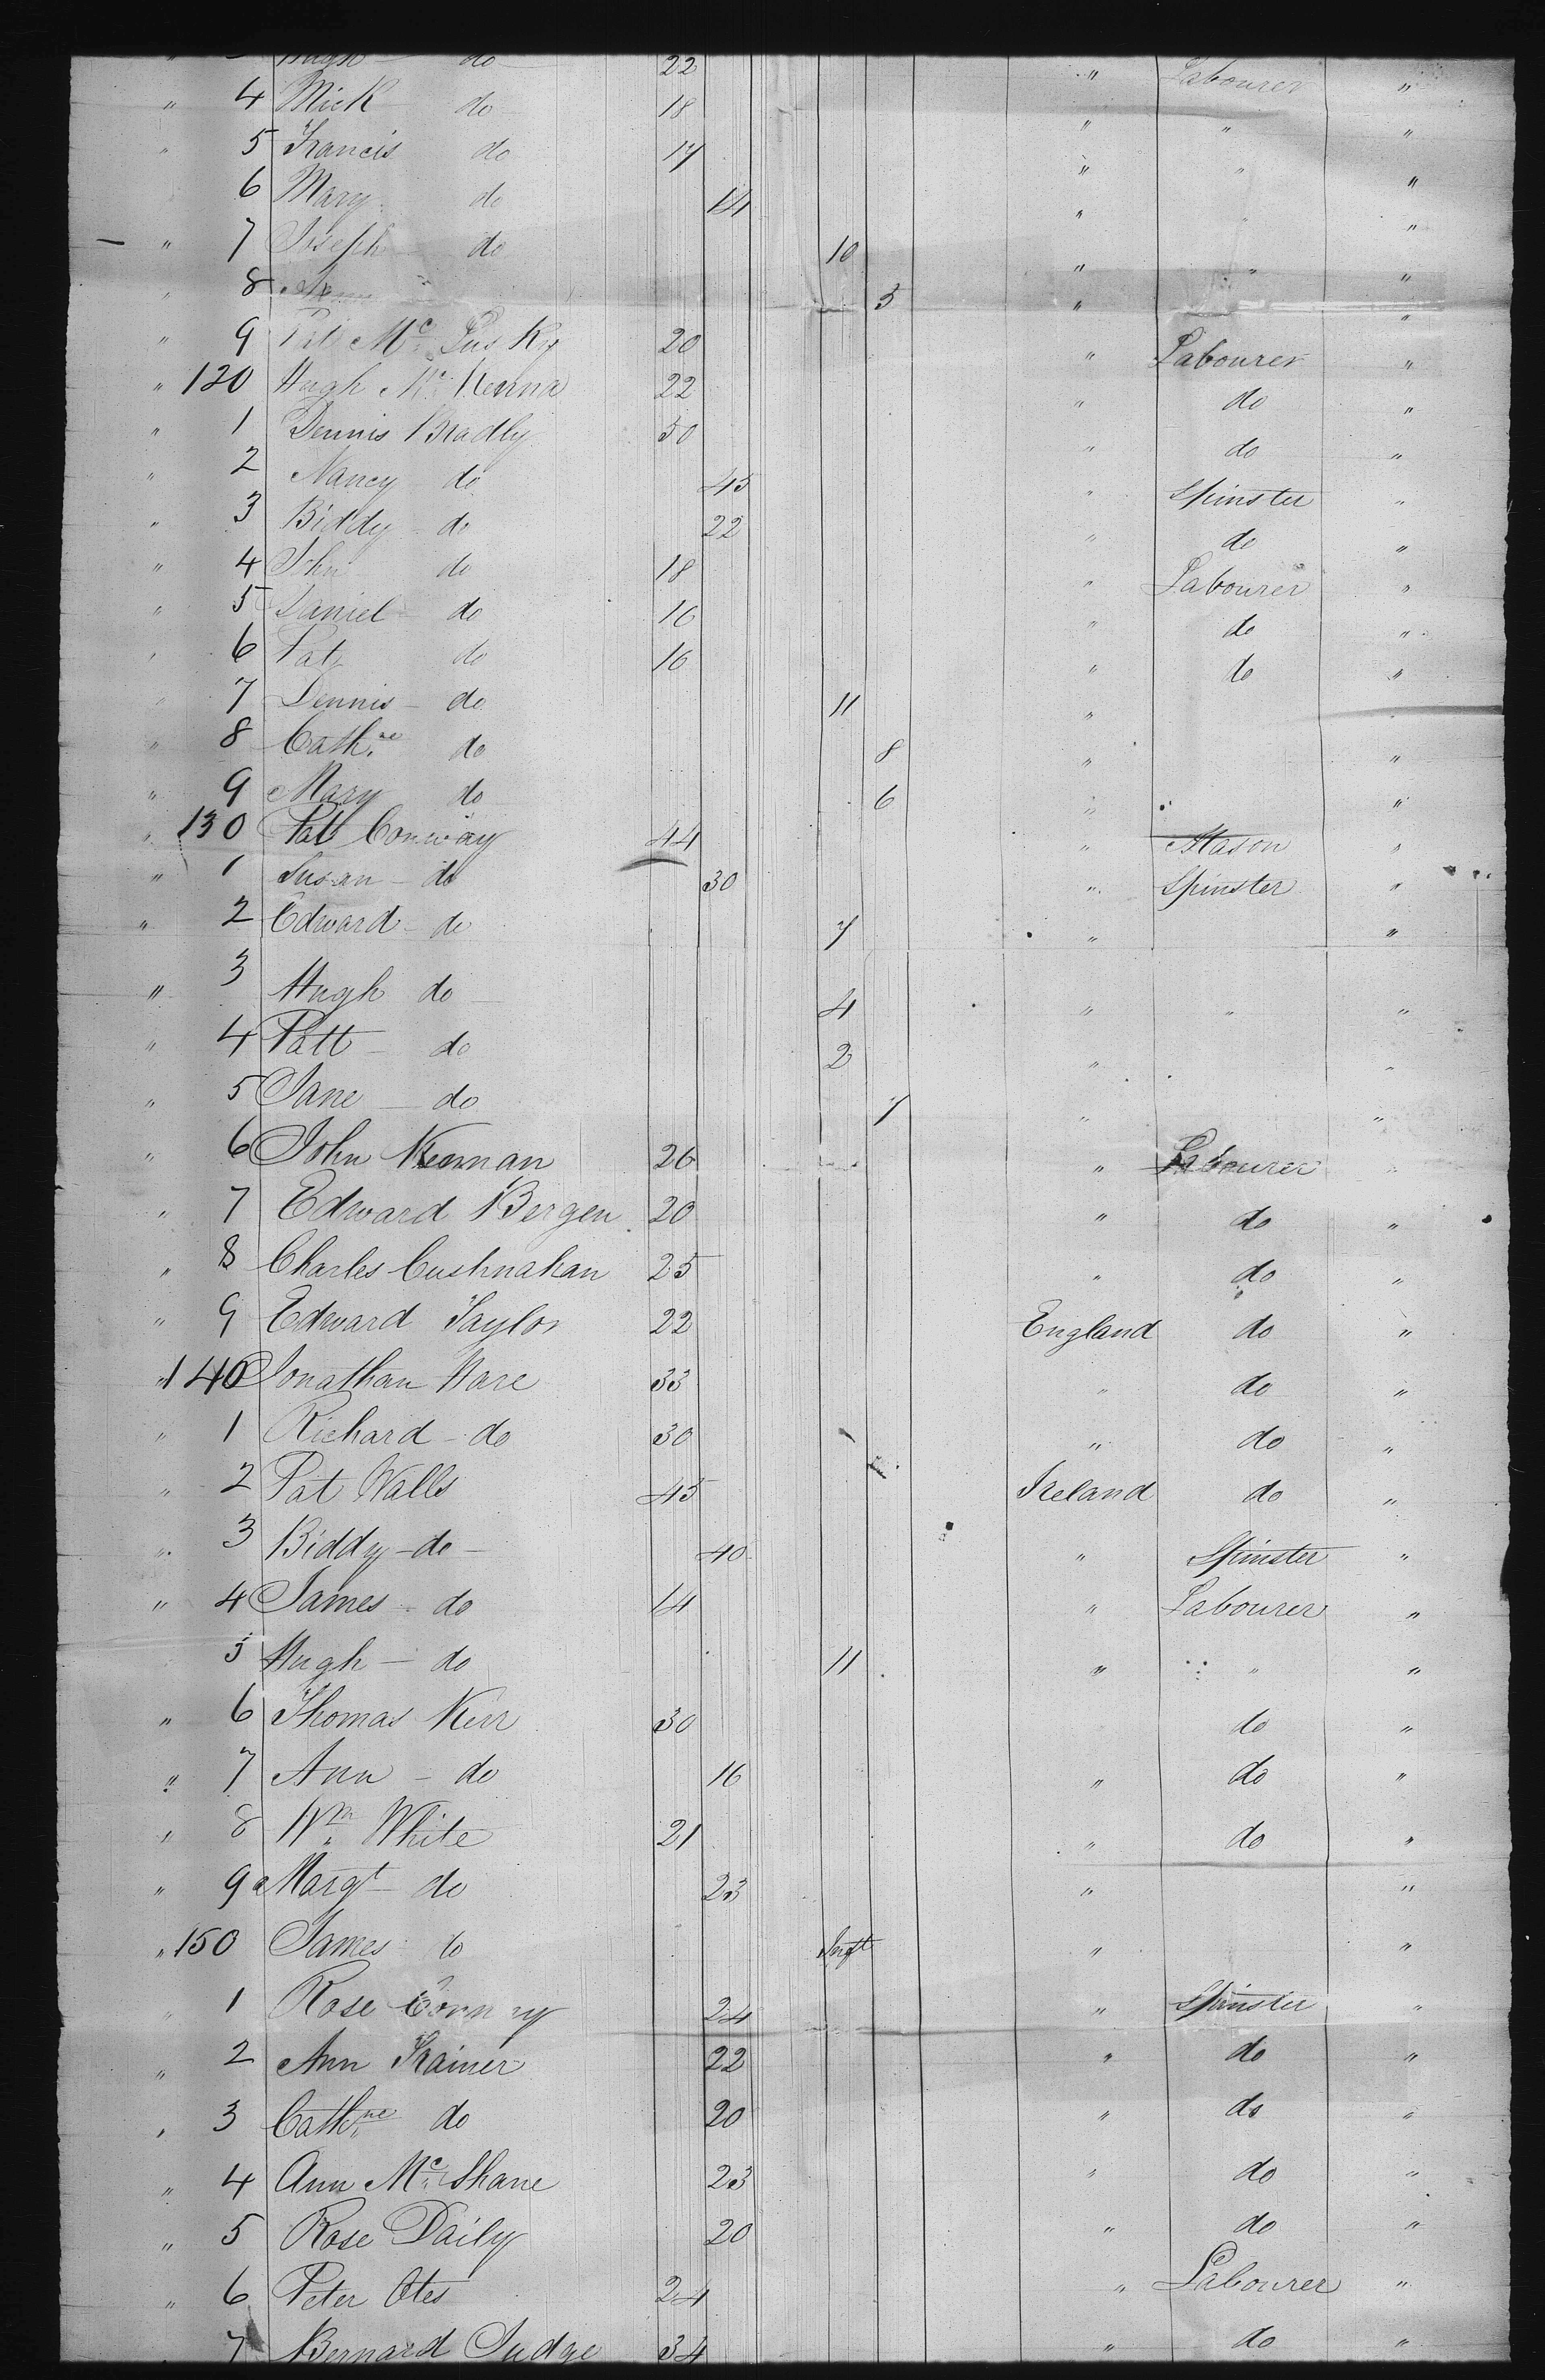 " Hugh do 22 " Labourer "
" 4 Mick do 18 " " "
" 5 Francis do 17 " " "
" 6 Mary do 14 " " "
" 7 Joseph do 10 " " "
" 8 5 " "
" 9 Mc 20 " Labourer "
" 120 Hugh Mc Kenna 22 " do "
" 1 Dennis Bradly 50 " do "
" 2 Nancy do 45 " Spinster "
" 3 Biddy do 22 " do "
" 4 John do 18 " Labourer "
" 5 Daniel do 16 " do "
" 6 Pat do 16 " do "
" 7 Dennis do 11 "
" 8 Cath.ne do 8 " "
" 9 Mary do 6 " "
" 130 Patt Conway 44 " Mason "
" 1 Susan do 30 " Spinster "
" 2 Edward do 7 " "
" 3 Hugh do 4 " " "
" 4 Patt do 2 " "
" 5 Jane do 7 " "
" 6 John 26 " Labourer "
" 7 Edward Bergen 20 " do "
" 8 Charles Cushnahan 25 " do "
" 9 Edward Taylor 22 England do "
" 140 Jonathan Hare 33 " do "
" 1 Richard do 30 " do "
" 2 Pat Walls 45 Ireland do "
" 3 Biddy do 40 " Spinster "
" 4 James do 14 " Labourer "
5 Hugh do 11 " " "
" 6 Thomas Kerr 30 do "
" 7 Ann do 16 " do "
" 8 Wm White 21 " do "
" 9 Margt do 23 " "
" 150 James do Inft " "
" 1 Rose 24 " Spinster "
" 2 Ann Trainer 22 " do "
" 3 Cathne do 20 " do "
" 4 Ann Mc Shane 23 " do "
" 5 Rose Daily 20 " do "
" 6 Peter Otes 24 " Labourer "
7 Bernard Judge 34 " do "